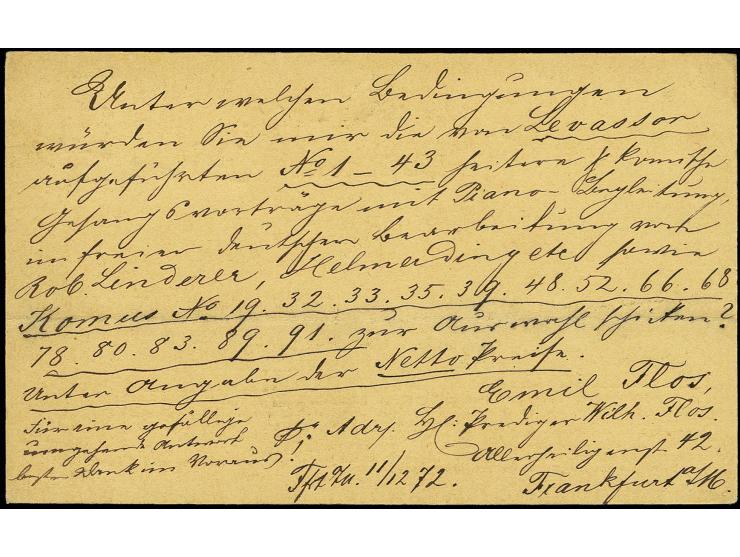 Unter welchen Bedingungen
würden Sie mir die von Levassor
aufgeführten No 1 – 43 heitere & komische
Gesangsvorträge mit Piano-Begleitung,
in freier deutschen Bearbeitung von
Rob. Linderer, Helmerding etc sowie
Komus No 19. 32. 33. 35. 39. 48. 52. 66. 68
78. 80. 83. 89. 91. zur Auswahl schicken?
Unter Angabe der Netto Preise.
Emil Flos,
Adr. H: Prediger Wilh. Flos.
Allerheiligenst 42.
Frankfurt a/M.
Für eine gefällige
umgehende Antwort
besten Dank im Voraus!
11/12 72.